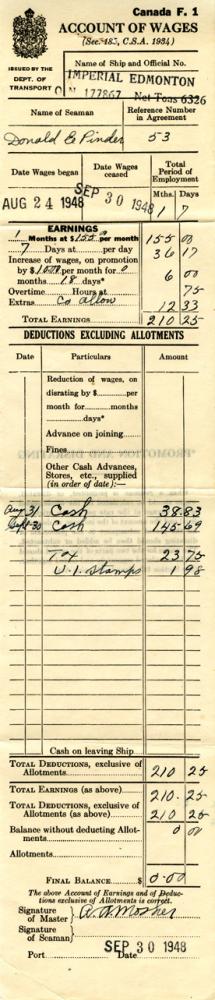 Canada F. 1
ACCOUNT OF WAGES
(Sec. 183, C.S.A. 1934)
ISSUED BY THE
DEPT. OF
TRANSPORT
Name of Ship and Official No.
IMPERIAL EDMONTON
O N 177867 Net Tons 6326
Name of Seaman
Reference Number
in Agreement
Donald E Pinder
53
Date Wages began
Date Wages
ceased
Total
Period of
Employment
Mths. Days
AUG 24 1948
SEP 30 1948
1 7
EARNINGS
1 Months at $155.00 per month 155 00
7 Days at per day 36 17
Increase of wages, on promotion
by $10.00 per month for 0
months 18 days* 6 00
Overtime Hours at 75
Extras Co allow 12 33
TOTAL EARNINGS 210 25
DEDUCTIONS EXCLUDING ALLOTMENTS
Date Particulars Amount
Reduction of wages, on
disrating by $ per
month for months
days*
Advance on joining
Fines
Other Cash Advances,
Stores, etc., supplied
(in order of date):—
Aug 31 Cash 38.83
Sept 30 Cash 145 69
Tax 23 75
U.I. Stamps 1 98
Cash on leaving Ship
TOTAL DEDUCTIONS, exclusive of
Allotments 210 25
TOTAL EARNINGS (as above) 210. 25
TOTAL DEDUCTIONS, exclusive of
Allotments (as above) 210 25
Balance without deducting Allot-
ments 0 00
Allotments
FINAL BALANCE $ 0.00
The above Account of Earnings and Deduc-
tions exclusive of Allotments is correct.
Signature
of Master A.A. Mosher
Signature
of Seaman
Port Date SEP 30 1948